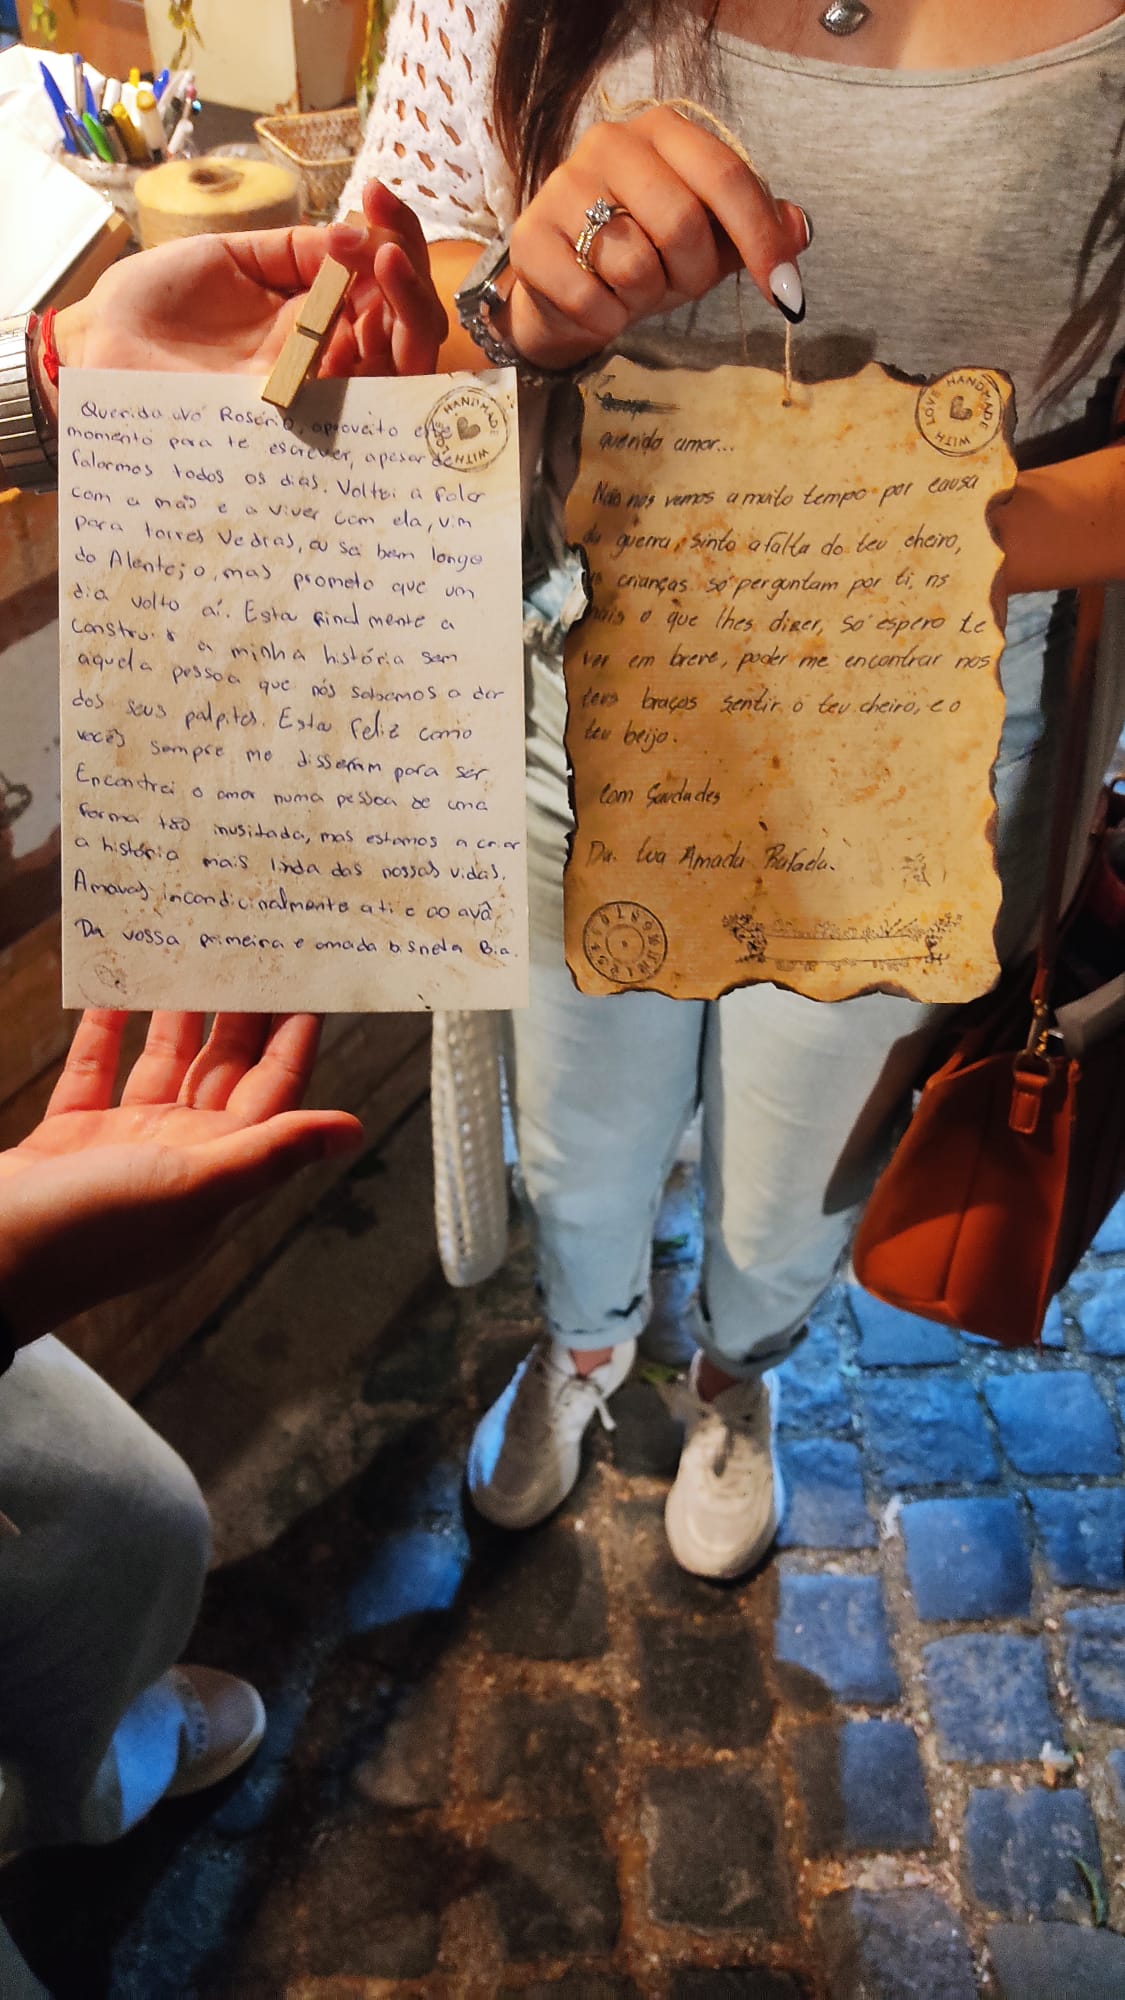 Querida avó Rosário, aproveito este
momento para te escrever, apesar de
falarmos todos os dias. Voltei a falar
com a mãe e a viver com ela, vim
para torres Vedras, eu sei bem longe
do Alentejo, mas prometo que um
dia volto aí. Estou finalmente a
construir a minha história sem
aquela pessoa que nós sabemos a dar
dos seus palpites. Estou feliz como
vocês sempre me disseram para ser.
Encontrei o amor numa pessoa de uma
forma tão inusitada, mas estamos a criar
a história mais linda das nossas vidas.
Amovos incondicionalmente a ti e ao avô
Da vossa primeira e amada bisneta Bia.
HANDMADE WITH LOVE
querido amor...
Não nos vemos a muito tempo por causa
da guerra, sinto a falta do teu cheiro,
as crianças só perguntam por ti, ns
mais o que lhes dizer, só espero te
ver em breve, poder me encontrar nos
teus braços sentir o teu cheiro, e o
teu beijo.
Com Saudades
Da. tua Amada Rafaela.
HANDMADE WITH LOVE